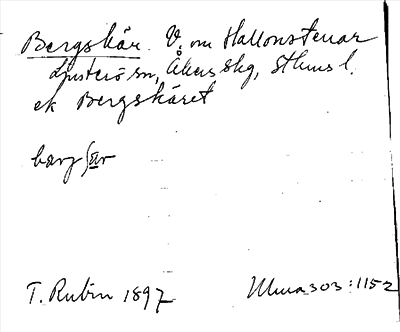 Bergskär. V. om Hallonstenar
Ljusterö sn, Åkers skg, Sthms l.
ek Bergskäret
T. Rubin 1897
303:1152